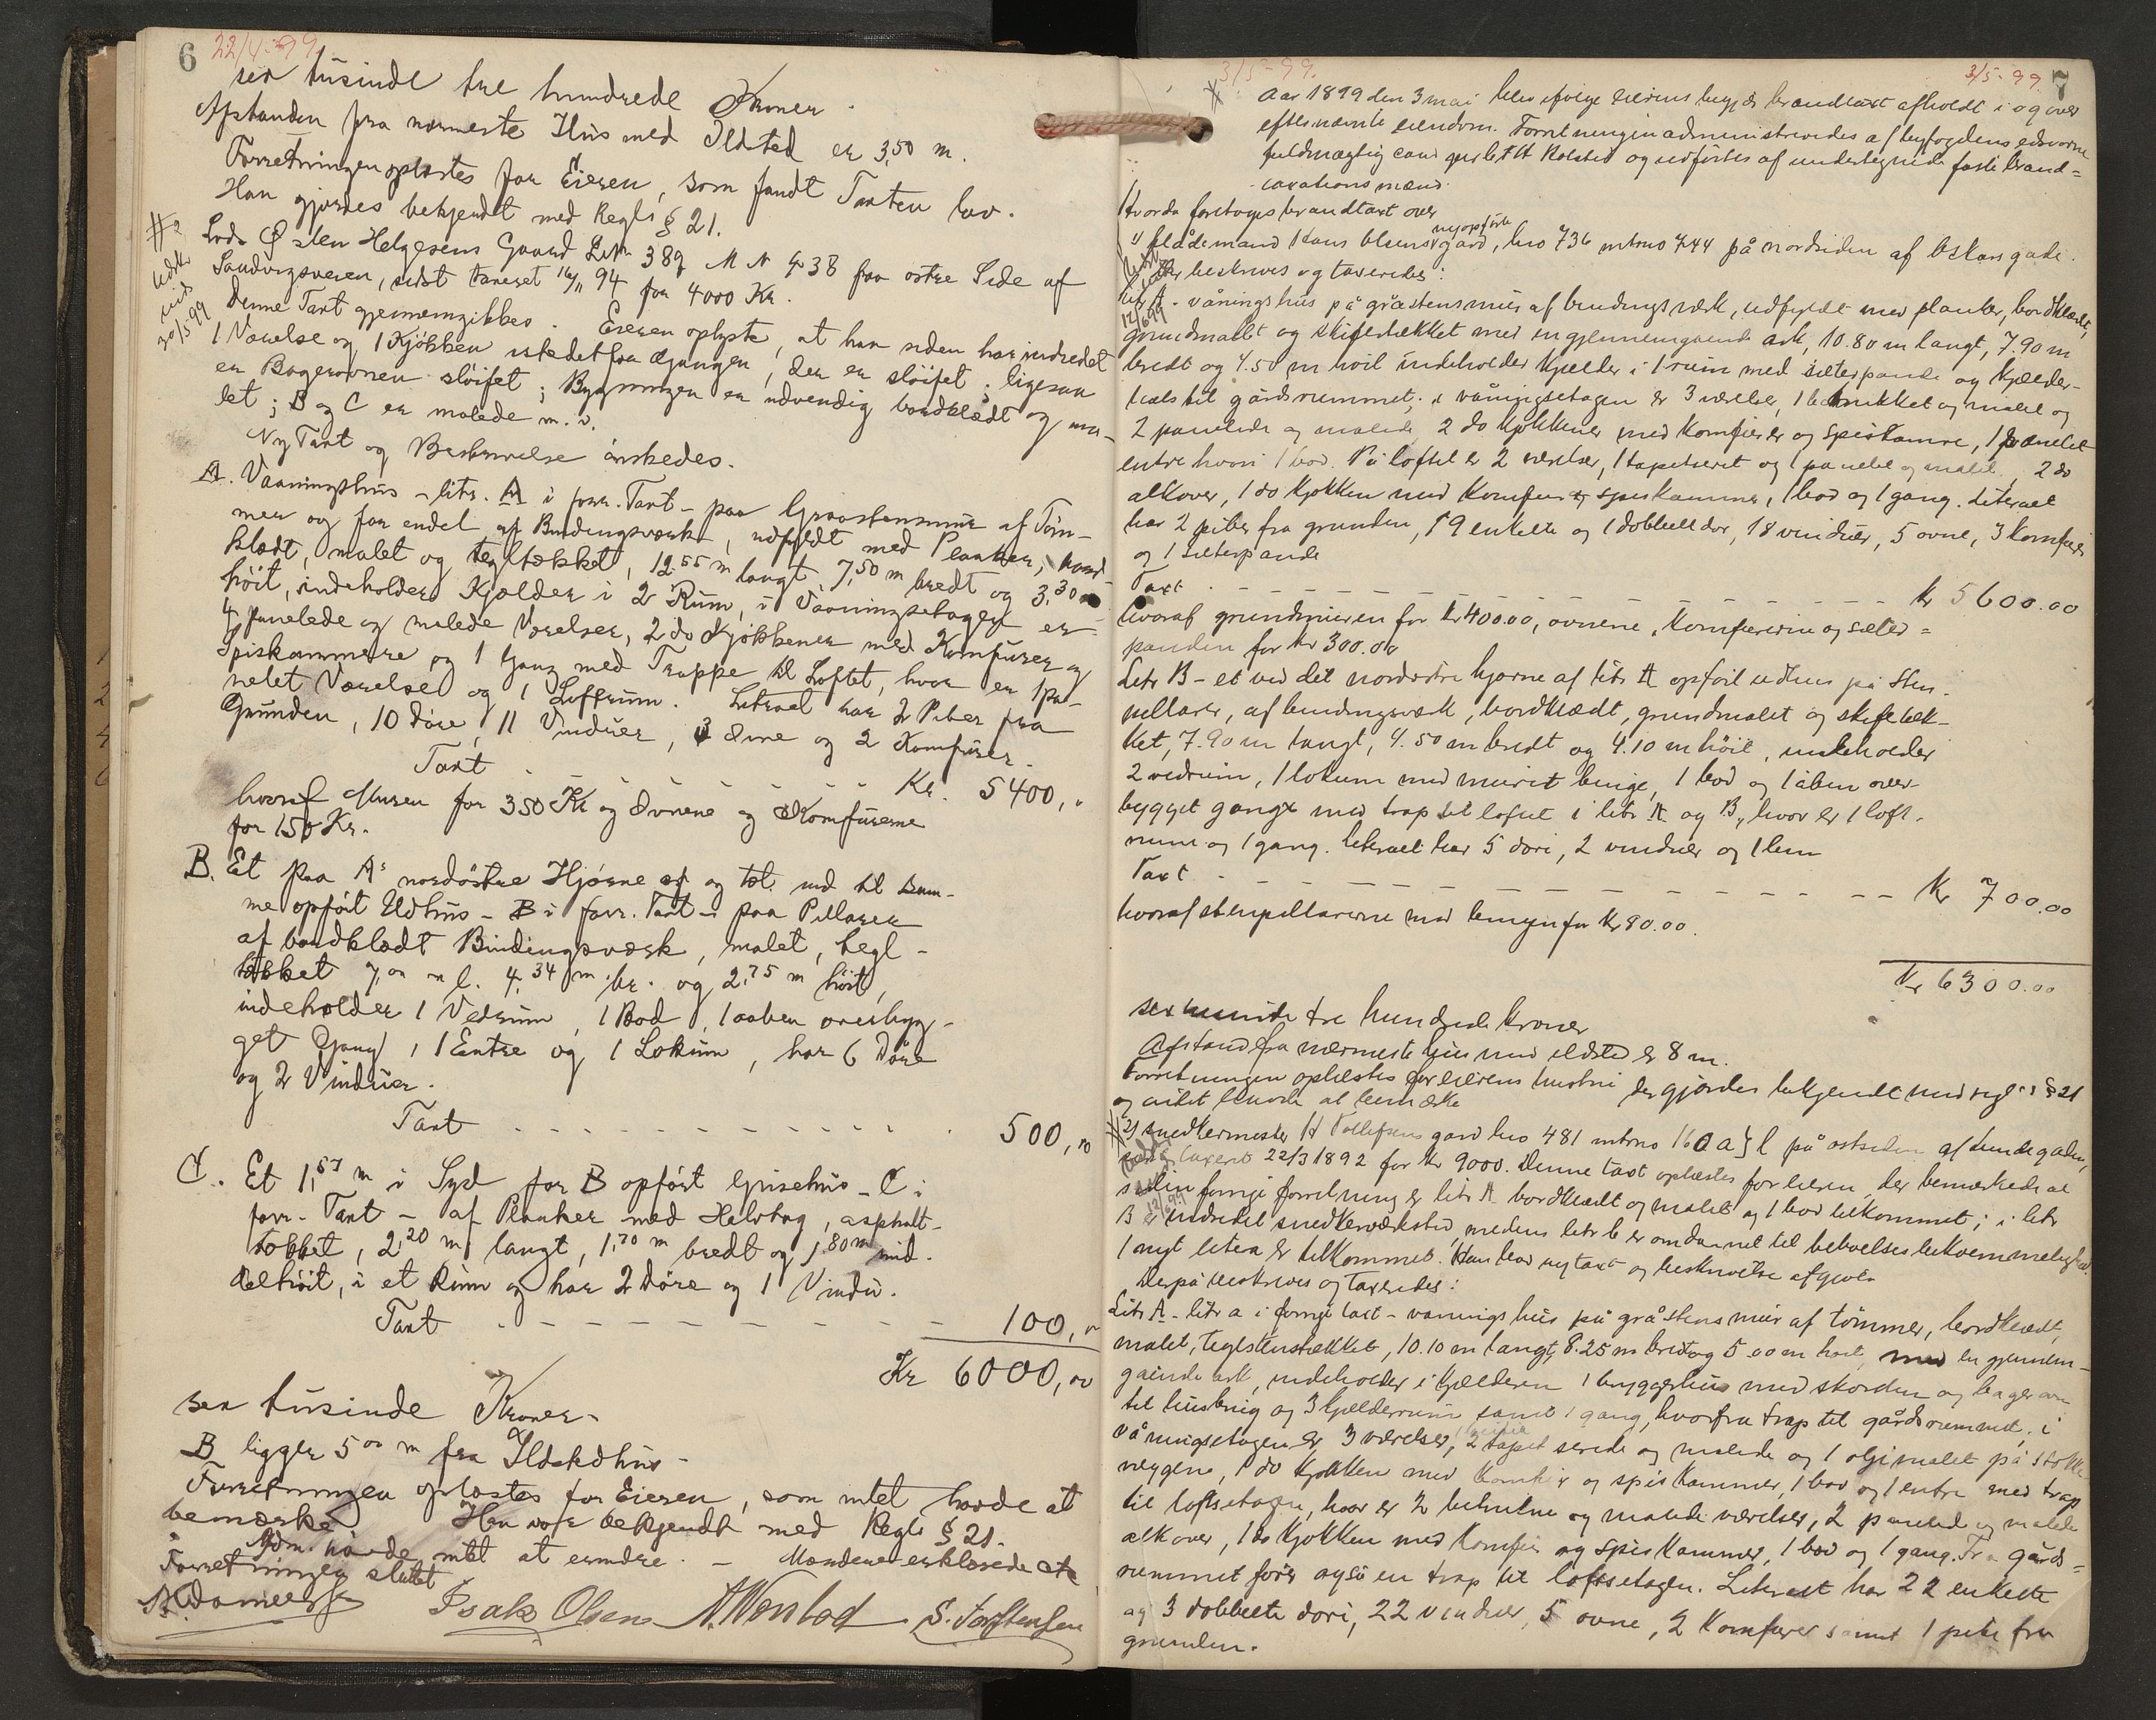 6 22/4-99.
sex tusinde tre hundrede Kroner.
Afstanden fra nærmeste Hus med Ildsted er 3,50 m.
Forretningen oplæstes for Eieren, som fandt Taxten lav.
Han gjordes bekjendt med Regls § 21.
# 2 Lods Østen Helgesens Gaard L. No 389 M N 438 paa østre Side af
Sandvigsveien, sidst taxeret 16/11 94 for 4000 Kr.
vid 30/5 99
Denne Taxt gjennemgikkes. Eieren oplyste, at han siden har indredet
1 Værelse og 1 Kjøkken istedetfor Gangen, der er sløifet; ligesaa
er Bagerovnen sløifet; Bygningen er udvendig bordklædt og ma-
let; B og C er malede m.v.
Ny Taxt og Beskrivelse ønskedes.
A. Vaaningshus - litr. A i forr. Taxt - paa Graastensmur af Tøm-
mer og for endel af Bindingsværk, udfyldt med Planker, bord-
klædt, malet og tegltækket, 12,55 m langt, 7,50 m bredt og 3,30 m
høit, indeholder Kjælder i 2 Rum, i Vaaningsetagen er
4 panelede og malede Værelser, 2 do Kjøkkener med Komfurer og
Spiskammere og 1 Gang med Trappe til Loftet, hvor er 1 pa-
nelet Værelse og 1 Loftrum. Literaet har 2 Piber fra
Grunden, 10 Døre, 11 Vinduer, 3 Ovne og 2 Komfurer.
Taxt - - - - - - - Kr. 5400,"
hvoraf Muren for 350 Kr og Ovnene og Komfurerne
for 150 Kr.
B. Et paa A's nordøstre Hjørne og tæt ind til Sam-
me opført Udhus - B i forr. Taxt - paa Pillarer
af bordklædt Bindingsværk, malet, tegl-
tækket 7,00 m l. 4,34 m br. og 2,75 m høit,
indeholder 1 Vedrum, 1 Bod, 1 aaben overbyg-
get Gang, 1 Entre og 1 Lokum, har 6 Døre
og 2 Vinduer.
Taxt - - - - - - - 500,00
C. Et 1,57 m i Syd for B opført Grisehus - C i
forr. Taxt - af Planker med Halvtag, asphalt-
tækket, 2,20 m langt, 1,70 m bredt og 1,80 m mid-
delhøit, i et Rum og har 2 Døre og 1 Vindu.
Taxt - - - - - - - 100,00
Kr 6000,00
sex tusinde Kroner.
B ligger 5,00 m fra Ildstedhus.
Forretningen oplæstes for Eieren, som intet havde at
bemærke. Han var bekjendt med Regls § 21.
Adm. havde intet at erindre. - Mændene erklærede
Forretningen sluttet
Isak Olsen S. Torstensen
3/5-99. 3/5-99. 7
Aar 1899 den 3 mai blev ifølge eierens begjær brandtaxt afholdt i og over
efternævnte eiendom. Forretningen administreredes af byfogdens edsvorne
fuldmægtig cand jur Rolsted og udførtes af undertegnede faste brand=
taxationsmænd.
Hvorda foretages brandtaxt over
nyopførte
1) flådemand Hans Olsens gård, lno 736 mtrno 744 på nordsiden af Oskars gade.
Der beskrives og taxeredes:
12/6 99
litr A - våningshus på gråstensmur af bindingsværk, udfyldt med planker, bordklædt,
grundmalt og skifertækket med en gjennemgaaende ark, 10.80 m langt, 7.90 m
bredt og 4.50 m høit indeholder kjælder i 1 rum med sæterpande og kjælder-
hals til gårdsrummet; i våningsetagen er 3 værelser, 1 betrukket og malet og
2 panelede og malede, 2 do kjøkkener med komfurer og spiskamre, 1 panelet
entre hvori 1 bod. På loftet er 2 værelser, 1 tapetseret og 1 panelet og malet, 2 do
alkover, 1 do kjøkken med komfur og spiskammer, 1 bod og 1 gang. Literaet
har 2 piber fra grunden, 19 enkelte og 1 dobbelt dør, 18 vinduer, 5 ovne, 3 komfurer
og 1 sæterpande
Taxt - - - - - - - Kr 5600.00
hvoraf grundmuren for Kr 400.00, ovnene, komfurerne og sæter=
panden for Kr 300.00
Litr B - et ved det nordøstre hjørne af litr A opført udhus på sten-
pillarer, af bindingsværk, bordklædt, grundmalet og skifertæk-
ket, 7.90 m langt, 4.50 m bredt og 4.10 m høit, indeholder
2 vedrum, 1 lokum med muret binge, 1 bod og 1 åben over-
bygget gang med trap til loftet i litr A og B, hvor er 1 loft-
rum og 1 gang. Literaet har 5 døre, 2 vinduer og 1 lem
Taxt - - - - - - - Kr 700.00
hvoraf stenpillarerne med bingen for Kr 80.00.
Kr 6300.00
sex tusinde tre hundrede kroner
Afstand fra nærmeste hus med ildsted er 8 m.
Forretningen oplæstes for eierens hustru der gjordes bekjendt med regl's § 21
og intet havde at bemærke
# 2) snedkermester H Tollefsens gård lno 481 mtrno 160 a} l på østsiden af Lundegaden,
sidst taxeret 22/3 1892 for Kr 9000. Denne taxt oplæstes for eieren, der bemærkede at
siden forrige forretning er litr A bordklædt og malet og 1 bod tilkommet; i litr
12/6 99
B er indredet snedkerværksted, medens litr b er omdannet til beboelsesbekvemmelighed.
1 nyt litera er tilkommet. Han bad ny taxt og beskrivelse afgivet
Derpå beskrives og taxeredes:
Litr A - litr a i forrige taxt - våningshus på gråstensmur af tømmer, bordklædt,
malet, teglstenstækket, 10.10 m langt, 8.25 m bredt og 5.00 m høit, med en gjennem-
gående ark, indeholder i kjælderen 1 bryggerhus med skorsten og bagerovn
til husbrug og 3 kjælderrum samt 1 gang, hvorfra trap til gårdsrummet; i
våningsetagen er 3 værelser, 2 tapetserede og malede og 1 oljemalet på strie
væggene, 1 do kjøkken med komfur og spiskammer, 1 bod og 1 entre med trap
til loftsetagen, hvor er 2 betrukne og malede værelser, 2 panelede og malede
alkover, 1 do kjøkken med komfur og spiskammer, 1 bod og 1 gang. Fra gårds=
rummet fører også en trap til loftsetagen. Literaet har 22 enkelte
og 3 dobbelte døre, 22 vinduer, 5 ovne, 2 komfurer samt 1 pibe fra
grunden.